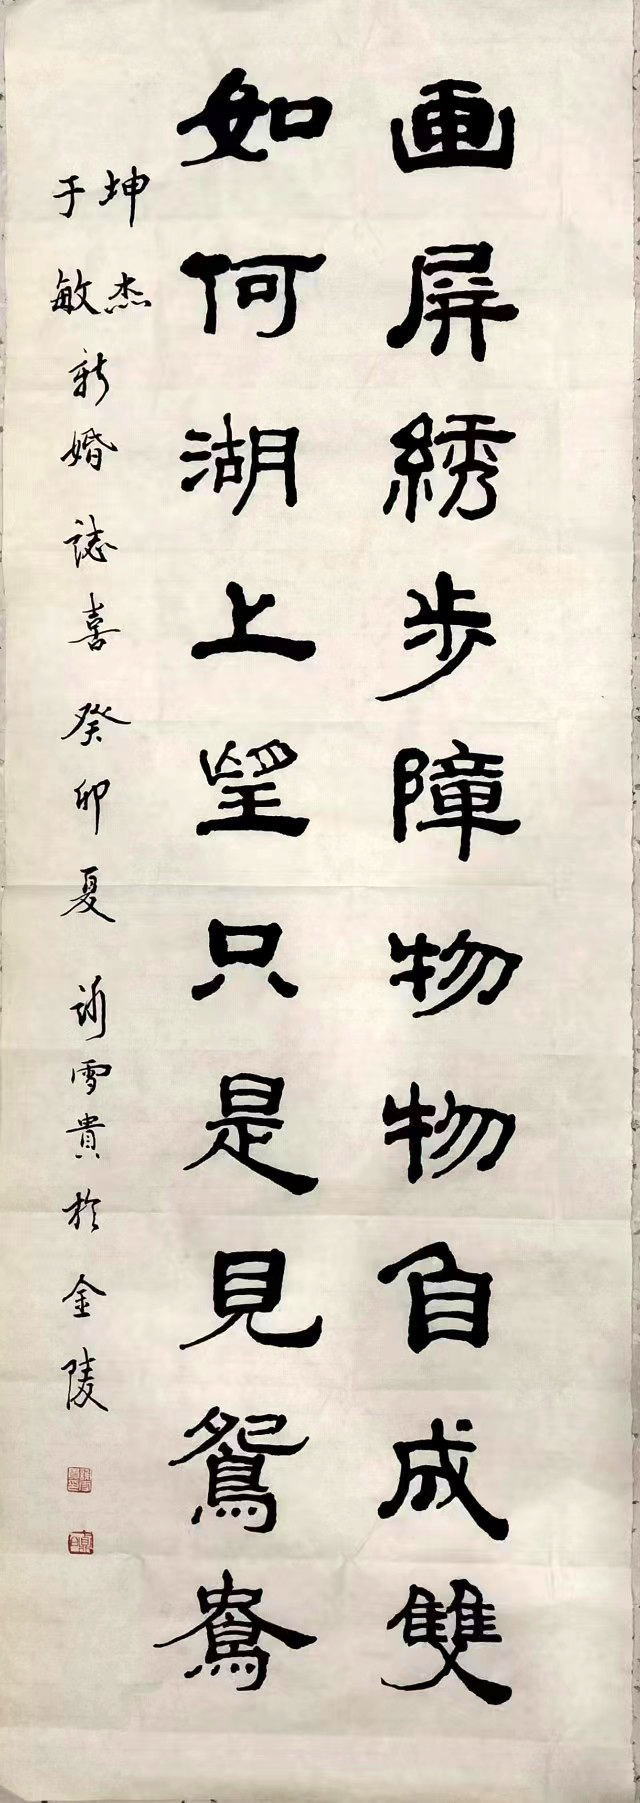 画屏繡步障物物自成雙
如何湖上望只是見鴛鴦
坤杰
于敏
新婚誌喜癸卯夏 雪貴於金陵